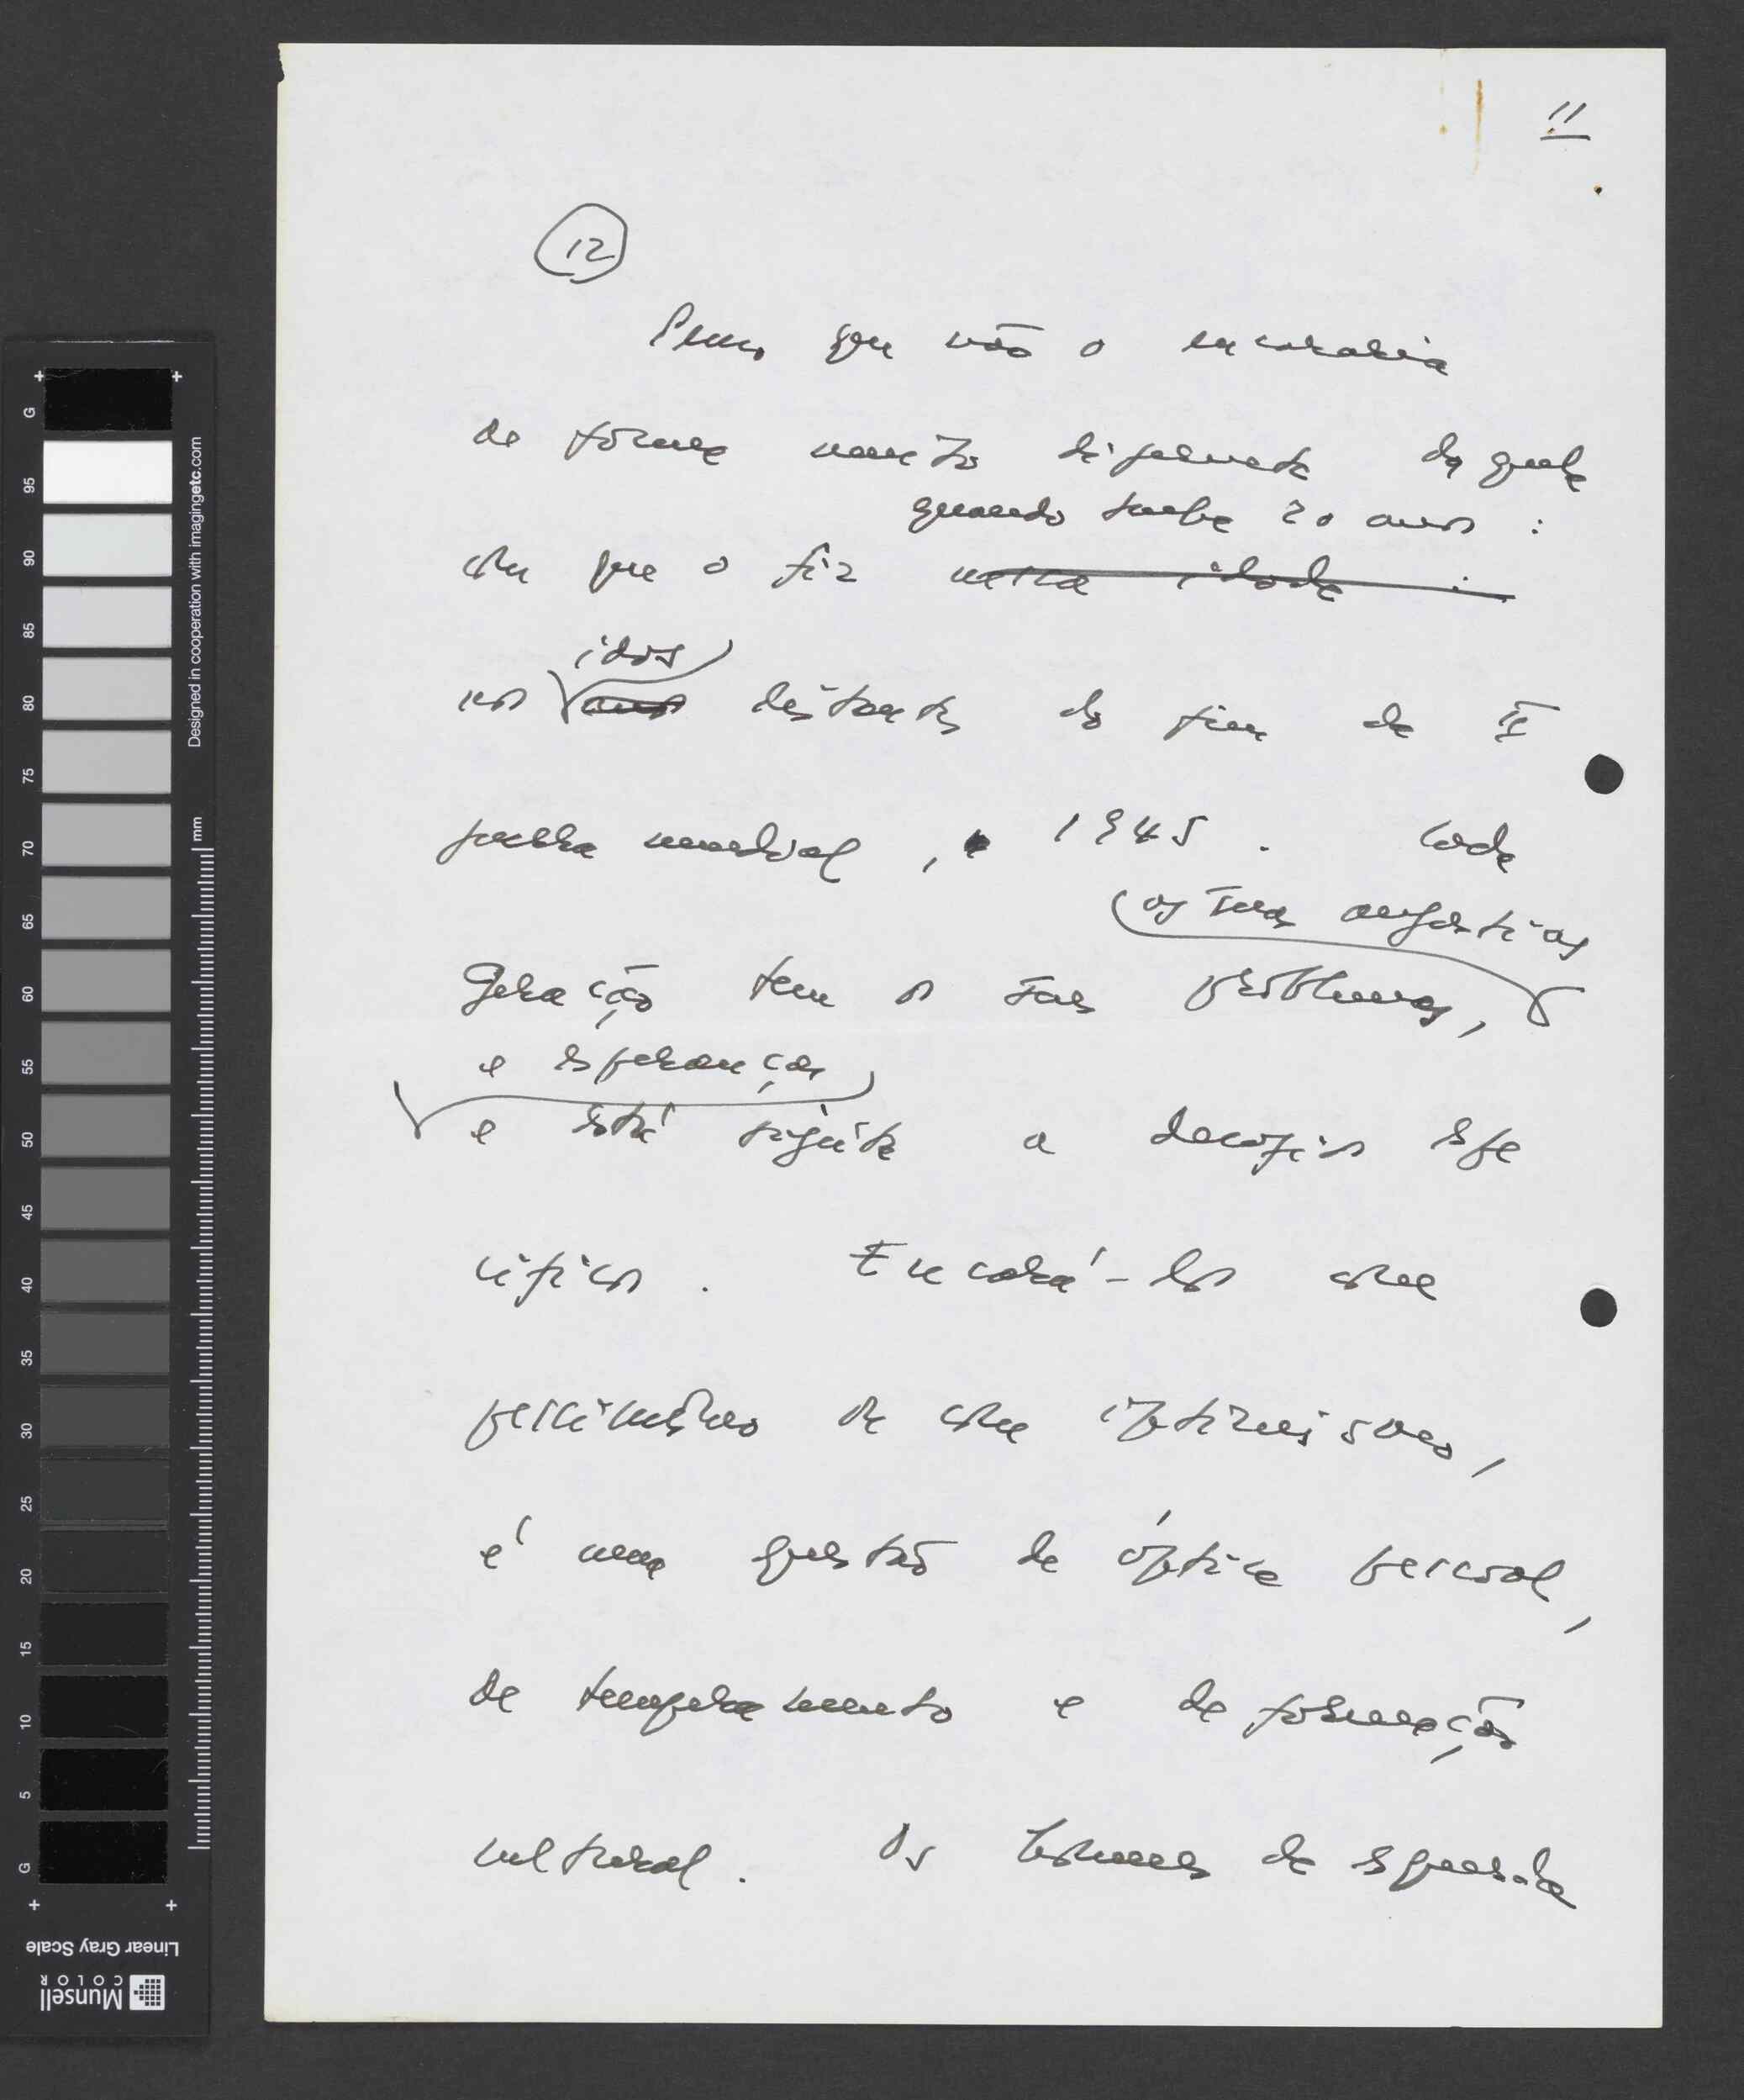 11
12
Penso que não o encararia
de forma muito diferente daquela
quando tinha 20 anos :
com que o fiz nessa idade :
idos
nos anos distantes do fim da II
guerra mundial, 1945. Cada
as suas angústias
geração tem os seus problemas,
e esperanças
e está sujeita a desafios espe
cíficos. Encará-los com
pessimismo ou com optimismo,
é uma questão de óptica pessoal,
de temperamento e de formação
cultural. Os homens de esquerda
G
95
90
85
80
75
70
65
60
55
50
45
40
35
30
25
20
15
10
5
G
mm
Designed in cooperation with imagingetc.com
Linear Gray Scale
Munsell
COLOR